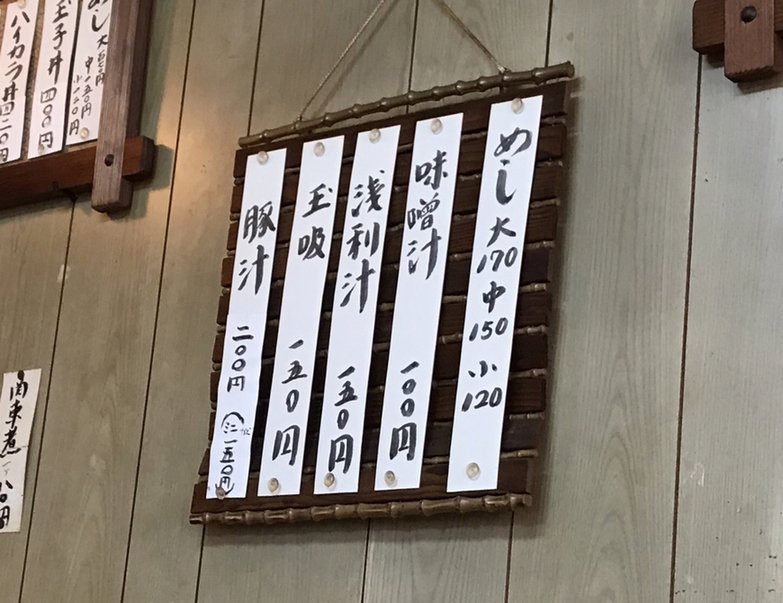 めし 大170 中150 小120
味噌汁 一〇〇円
浅利汁 一五〇円
玉吸 一五〇円
豚汁 二〇〇円 (ミニ 一五〇円)
めし 大
中一五〇円
玉子丼 四〇〇円
ハイカラ丼 四二〇円
関東煮
八〇円